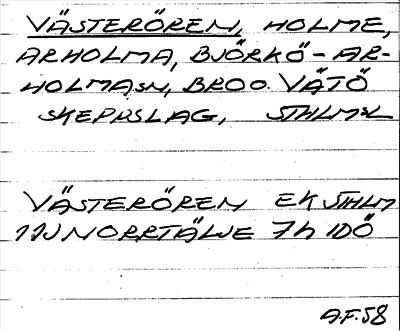 VÄSTERÖREN, HOLME,
ARHOLMA, BJÖRKÖ-AR-
HOLMA SN, BRO O. VÄTÖ
SKEPPSLAG, STHLMSL
VÄSTERÖREN EK STHLM
11J NORRTÄLJE 7h IDÖ
A.F.58